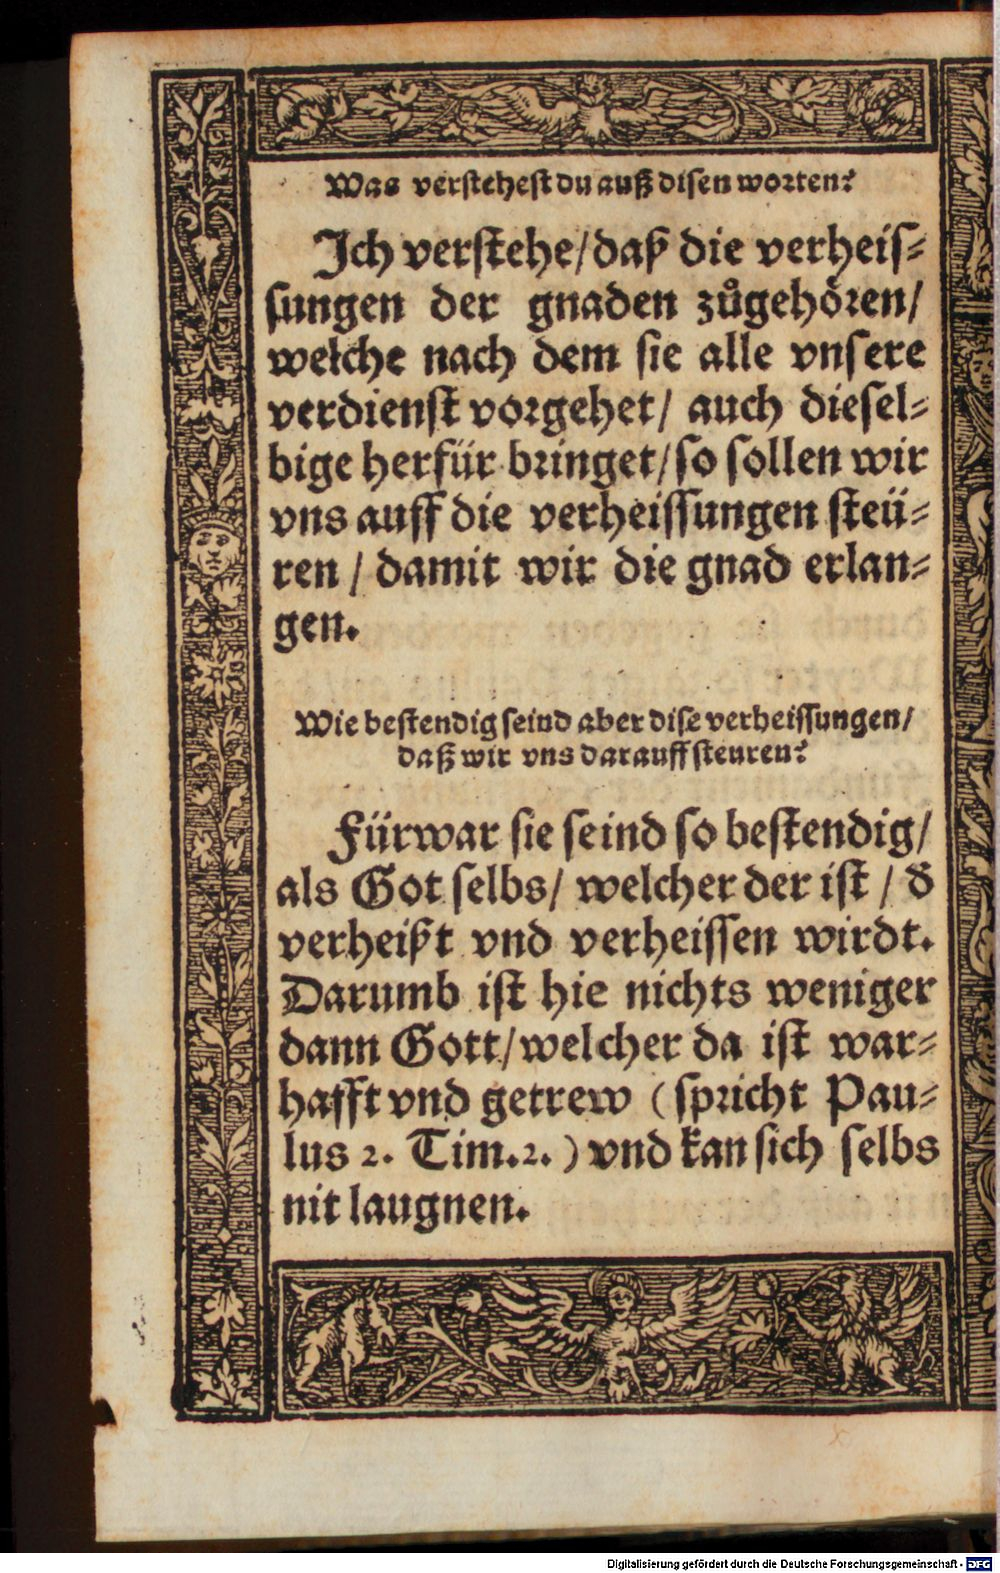 Was verstehest du auß disen worten?
Ich verstehe/daß die verheis⸗
sungen der gnaden zůgehören/
welche nach dem sie alle vnsere
verdienst vorgehet/ auch diesel⸗
bige herfür bringet/so sollen wir
vns auff die verheissungen steü⸗
ren / damit wir die gnad erlan⸗
gen.
Wie bestendig seind aber dise verheissungen/
daß wir vns darauff steuren?
Fürwar sie seind so bestendig/
als Got selbs/ welcher der ist / d̕
verheißt vnd verheissen wirdt.
Darumb ist hie nichts weniger
dann Gott/welcher da ist war⸗
hafft vnd getrew (spricht Pau⸗
lus 2. Tim.2.) vnd kan sich selbs
nit laugnen.
Digitalisierung gefördert durch die Deutsche Forschungsgemeinschaft - DFG